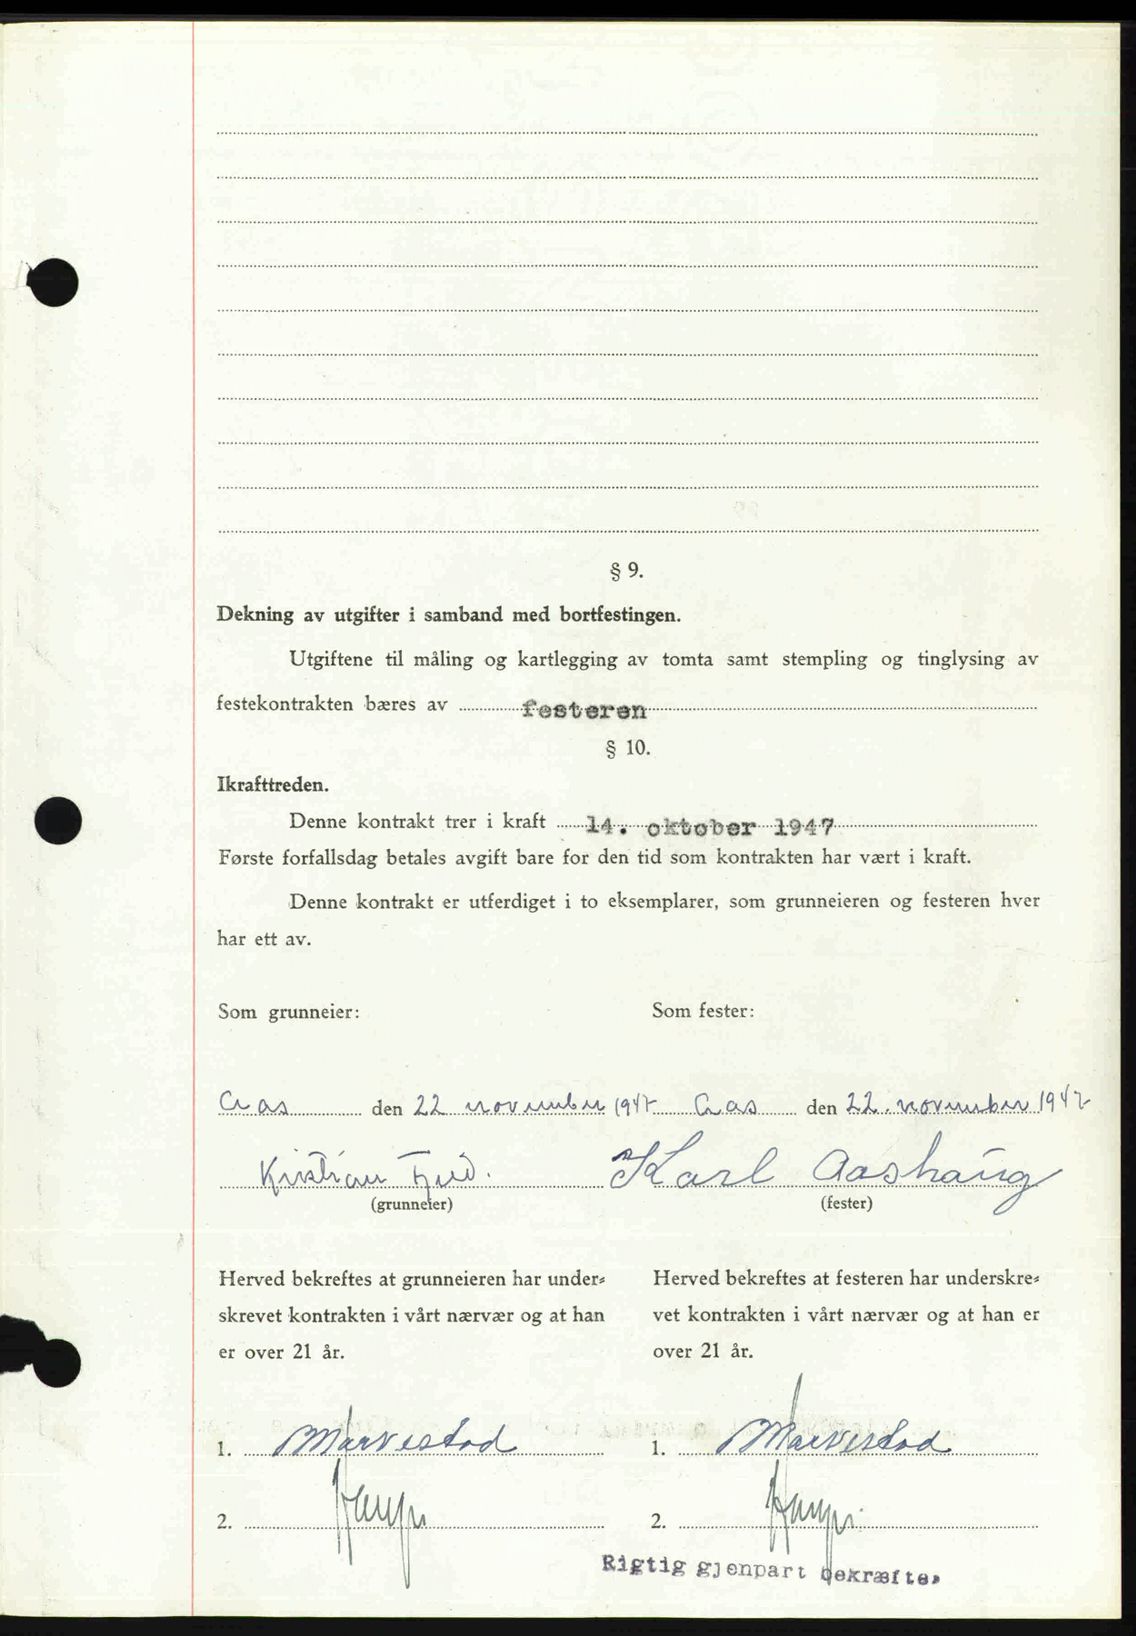 § 9.
Dekning av utgifter i samband med bortfestingen.
Utgiftene til måling og kartlegging av tomta samt stempling og tinglysing av
festekontrakten bæres av festeren
§ 10.
Ikrafttreden.
Denne kontrakt trer i kraft 14. oktober 1947
Første forfallsdag betales avgift bare for den tid som kontrakten har vært i kraft.
Denne kontrakt er utferdiget i to eksemplarer, som grunneieren og festeren hver
har ett av.
Som grunneier:
Som fester:
Aas den 22 november 1947
Aas den 22. november 1947
Kristian
Karl Aashaug
(grunneier)
(fester)
Herved bekreftes at grunneieren har under-
skrevet kontrakten i vårt nærvær og at han
er over 21 år.
Herved bekreftes at festeren har underskre-
vet kontrakten i vårt nærvær og at han er
over 21 år.
1.
1.
2.
2.
Rigtig gjenpart bekræftes